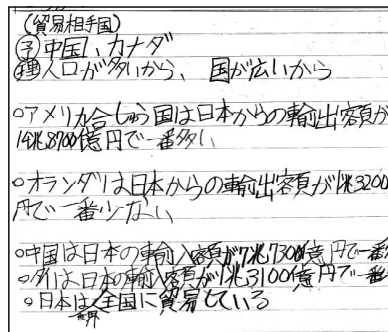 (貿易相手国)
予 中国、カナダ
理 人口が多いから、国が広いから
○アメリカ合しゅう国は日本からの輸出容頁が
14兆8700億円で一番多い
○オランダは日本からの輸出容頁が1兆3200
円で一番少ない
○中国は日本の輸入容頁が7兆7300億円で一番
○タイは日本の輸入容頁が1兆3100億円で一番
○日本は全国に貿易している
世界